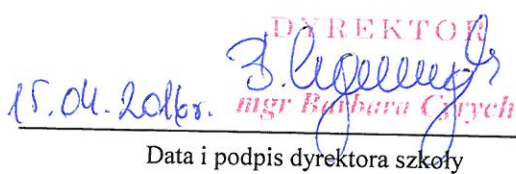 DYREKTOR
15.04.2016r. mgr Barbara Cyrych
Data i podpis dyrektora szkoły